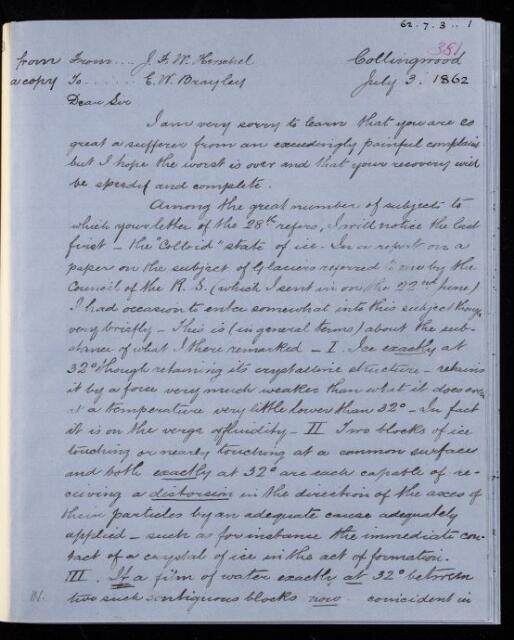 62.7.3..1
381
from From.... J.F.W. Herschel Collingwood
a copy To...... E.W. Brayley July 3. 1862
Dear Sir
I am very sorry to learn that you are so
great a sufferer from an exceedingly painful complaint
but I hope the worst is over and that your recovery will
be speedy and complete.
Among the great number of subjects to
which your letter of the 28th refers, I will notice the last
first – the "Colloid" state of ice. In a report on a
paper on the subject of Glaciers referred to me by the
Council of the R.S. (which I sent in on the 22nd June)
I had occasion to enter somewhat into this subject though
very briefly – This is (in general terms) about the sub-
stance of what I there remarked – I. Ice exactly at
32° though retaining its crystalline structure – retains
it by a force very much weaker than what it does even
at a temperature very little lower than 32° – In fact
it is on the verge of fluidity – II Two blocks of ice
touching or nearly touching at a common surface
and both exactly at 32° are each capable of re-
ceiving a distorsion in the direction of the axes of
their particles by an adequate cause adequately
applied – such as for instance the immediate con-
tact of a crystal of ice in the act of formation.
III. If a film of water exactly at 32° between
two such contiguous blocks now coincident in